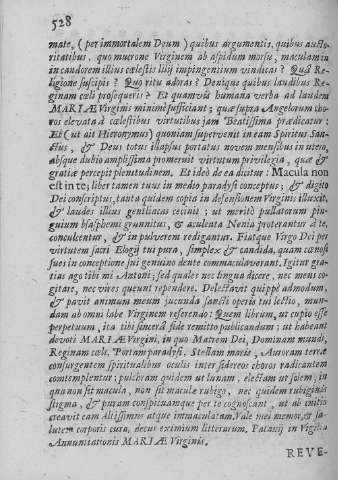 528
mate, (per immortalem Deum) quibus argumentis, quibus aucto-
ritatibus, quo mucrone Virginem ab aspidum morsu, maculamin
in candorem illius cælestis lilij impingentium vindicas? Quâ Re-
ligione suscipis? Quo ritu adoras? Deutque quibus laudibus Re-
ginam cœli prosequeris? Et quamvis humana verba ad laudem
MARIÆ Virginis minimè sufficiant; quæ supra Angelorum cho-
ros elevata à cœlestibus virtutibus jam Beatissima prædicatur:
Et (ut ait Hieronymus) quoniam supervenit in eam Spiritus San-
ctus, & Deus totus illapsus portatus novem mensibus in utero,
absque dubio amplissima promeruit virtutum privilegia, quæ &
gratiæ percepit plenitudinem. Et ideò de ea dicitur: Macula non
est in te; liber tamen tuus in medio paradysi conceptus; & digito
Dei conscriptus, tanta quidem copia in defensionem Virginis illuxit,
& laudes illius geniliacas cecinit; ut meritò pullatorum pin-
guium blasphemi grunnitus, & aculeata Nenia proterantur à te,
conculcentur, & in pulverem redigantur. Fiatque Virgo Dei per
virtutem sacri Elogij tui pura, simplex & candida, quam canost
sues in conceptione sui genuino dente commaculaverant. Igitur gra-
tias ago tibi mi Antoni; sed quales nec lingua dicere, nec mens co-
gitare, nec vires queunt rependere. Delectavit quippè admodum,
& pavit animum meum jucunda sancti operis tui lectio, mun-
dam ab omni labe Virginem referendo: Quem librum, ut cupio esse
perpetuum, ita tibi sincerâ fide remitto publicandum; ut habeant
devoti MARIÆ Virgini, in quo Matrem Dei, Dominam mundi,
Reginam cœli, Portam paradysi, Stellam maris, Auroram terræ
consurgentem spiritualibus oculis inter sidereos choros radicantem
contemplentur; pulchram quidem ut lunam, electam ut solem; in
qua non sit macula, non sit maculæ rubigo, nec quidem rubiginis
stigma, & puram conspituamque per te cognoscant, ut ab initio
creavit eam Altissimus atque immaculatam. Vale mei memor, & sa-
lutem corporis cura, decus eximium litterarum. Patavij in Vigilia
Annuntiationis MARIÆ Virginis.
REVE-